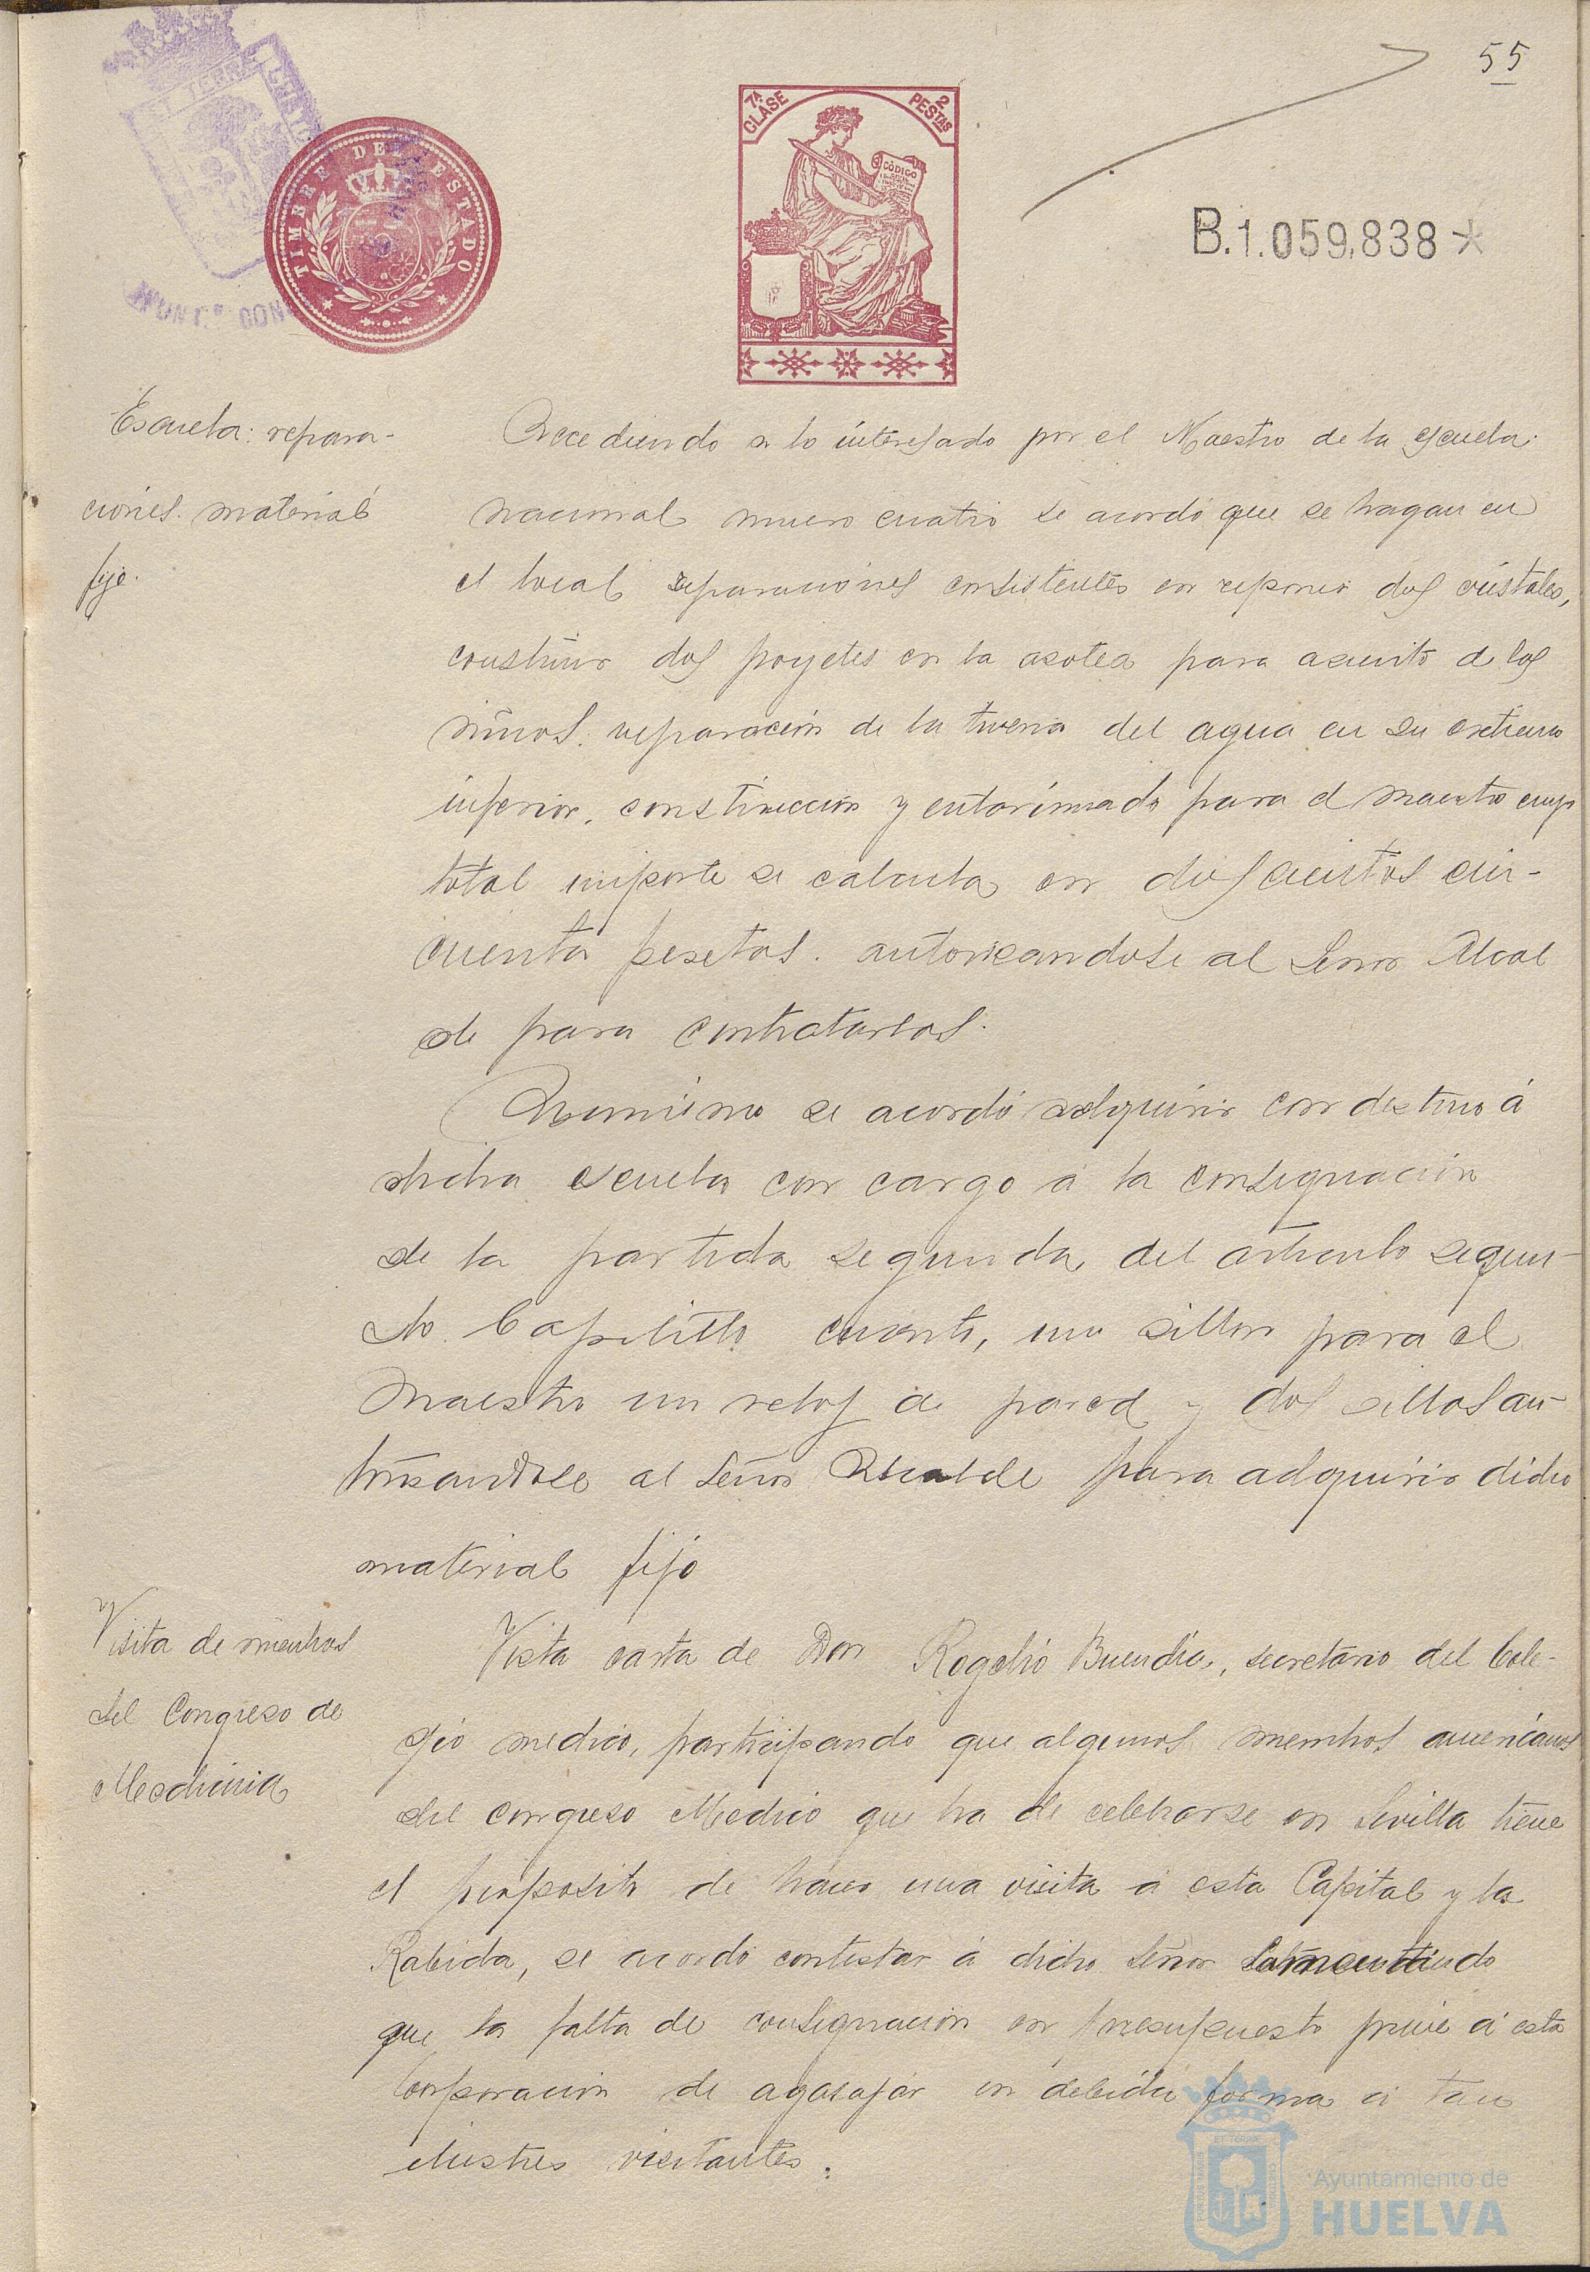 55
7ª CLASE
2 PESTAS
CÓDIGO
TIMBRE DEL ESTADO
B.1.059,838*
Escuela: repara-
ciones. material
fijo.
Accediendo a lo interesado por el Maestro de la escuela
nacional muero cuatro se acordó que se hagan en
el local reparaciones consistentes en reponer dos cristales,
construir dos poyetes en la azotea para asiento de los
niños. reparación de la tuveria del agua en su extremo
inferior, construcción y entarimado para el maestro cuyo
total importe se calcula en doscientos cin-
cuenta pesetas. autorizandose al Señor Alcal
de para contratarlas.
Asimismo se acordó adquirir con destino á
dicha escuela con cargo á la consignación
de la partida segunda del articulo segun-
do Capitulo cuarto, un sillon para el
maestro un reloj de pared y dos sillas au-
torizandose al Señor Alcalde para adquirir dicho
material fijo
Visita de miembros
del Congreso de
Medicina
Vista carta de Don Rogelio Buendia, secretario del Cole-
gio medico, participando que algunos miembros americanos
del congreso Medico que ha de celebrarse en Sevilla tiene
el proposito de hacer una visita á esta Capital y la
Rabida, se acordó contestar á dicho Señor
que la falta de consignación en presupuesto prive á esta
Corporación de agasajar en debida forma á tan
ilustres visitantes.
Ayuntamiento de
HUELVA